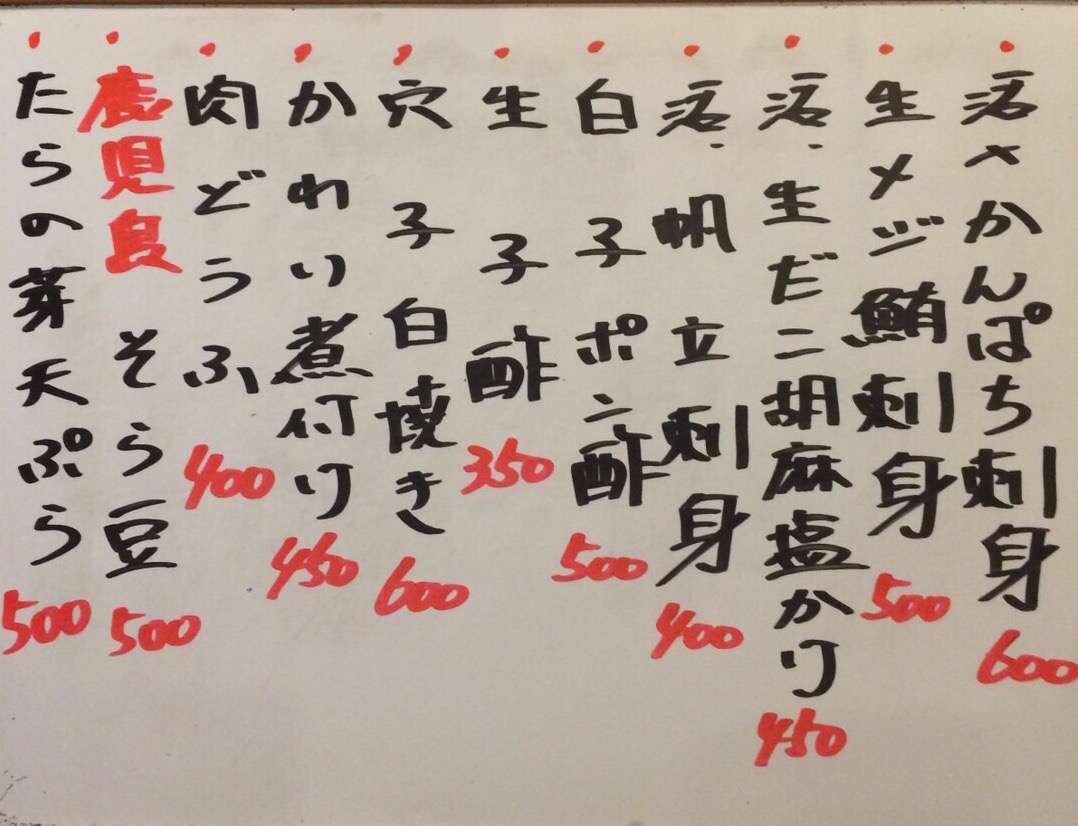 活〆かんぱち刺身 600
生メジ鮪刺身 500
活・生だこ胡麻塩かけ 450
活・帆立刺身 400
白子ポン酢 500
生子酢 350
穴子白焼き 600
かれい煮付け 450
肉どうふ 400
鹿児島 そら豆 500
たらの芽天ぷら 500